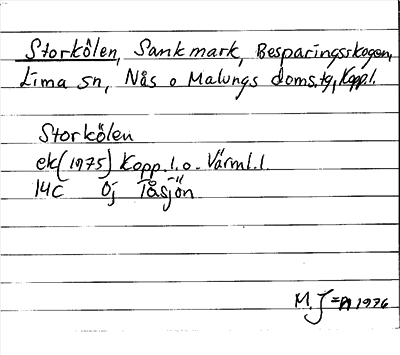 Storkölen, Sankmark, Besparingsskogen,
Lima sn, Nås o Malungs doms.tg, Kopp l.
Storkölen
ek (1975) Kopp. l. o. Värml. l.
14C Öj Tåsjön
M. J = n 1976